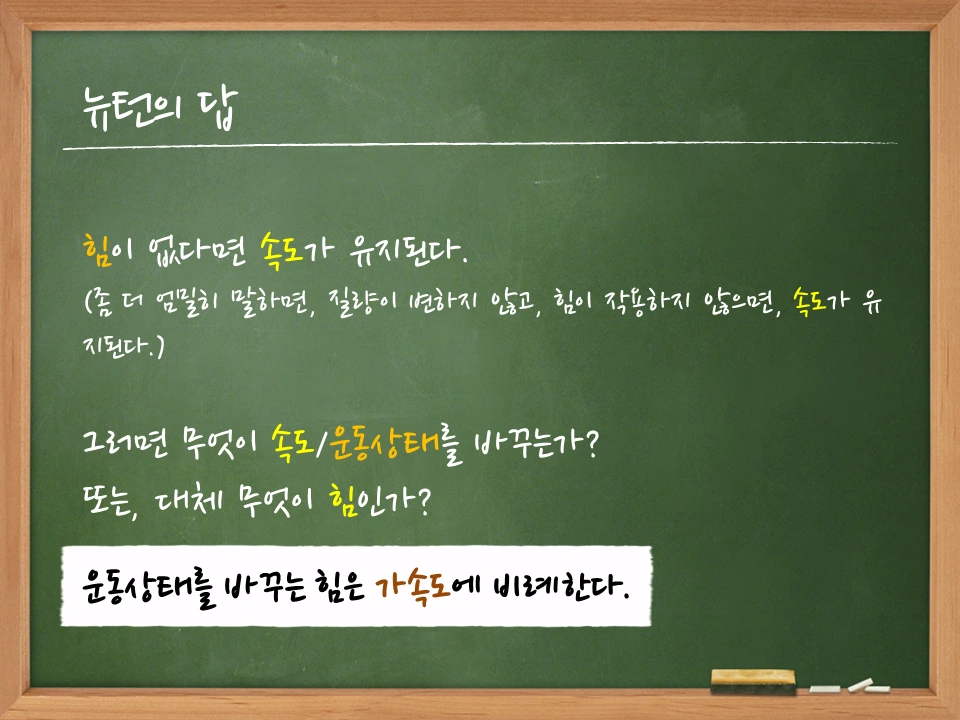 뉴턴의 답
힘이 없다면 속도가 유지된다.
(좀 더 엄밀히 말하면, 질량이 변하지 않고, 힘이 작용하지 않으면, 속도가 유
지된다.)
그러면 무엇이 속도/운동상태를 바꾸는가?
또는, 대체 무엇이 힘인가?
운동상태를 바꾸는 힘은 가속도에 비례한다.